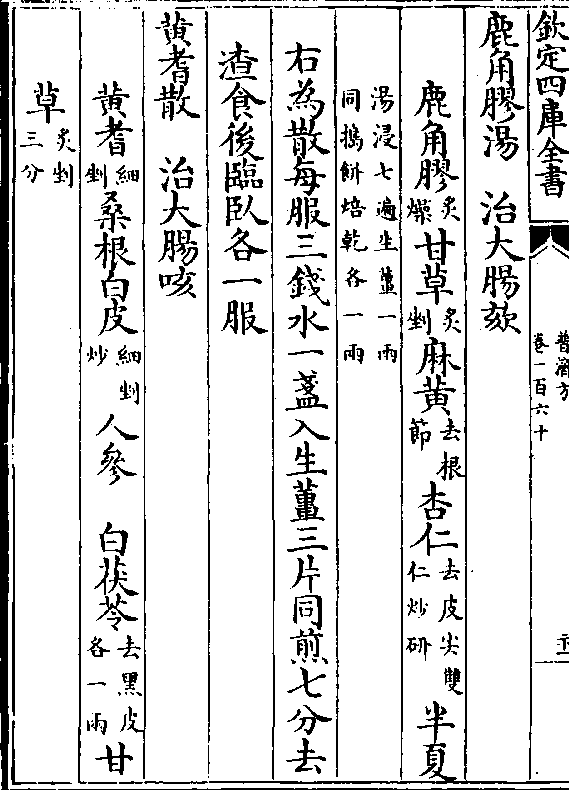 欽定四庫全書
普濟方
卷一百六十
鹿角膠湯　治大腸欬
鹿角膠炙燥甘草炙剉麻黄去根節杏仁去皮尖雙仁炒研半夏
湯浸七遍生薑一兩同搗餅焙乾各一兩
右為散每服三錢水一盞入生薑三片同煎七分去
渣食後臨臥各一服
黄耆散　治大腸咳
黄耆細剉桑根白皮細剉炒人參　白茯苓去黑皮各一兩甘
草炙剉三分